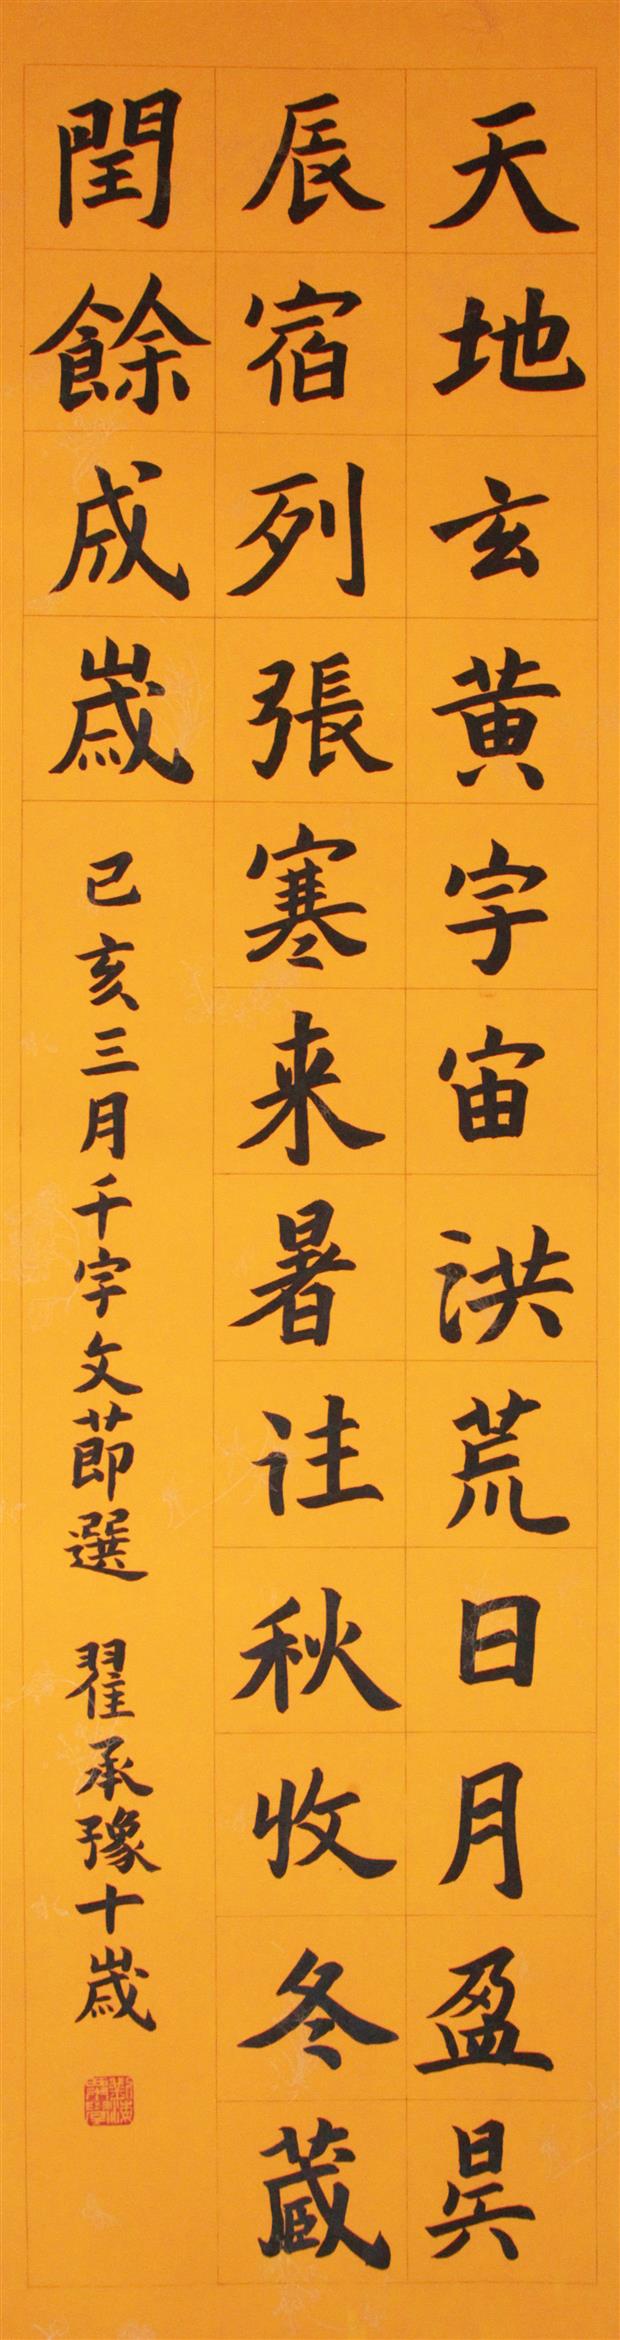 天地玄黄宇宙洪荒日月盈昃
辰宿列張寒来暑往秋收冬蔵
閏餘成歲
己亥三月千字文節選 翟承豫十歲